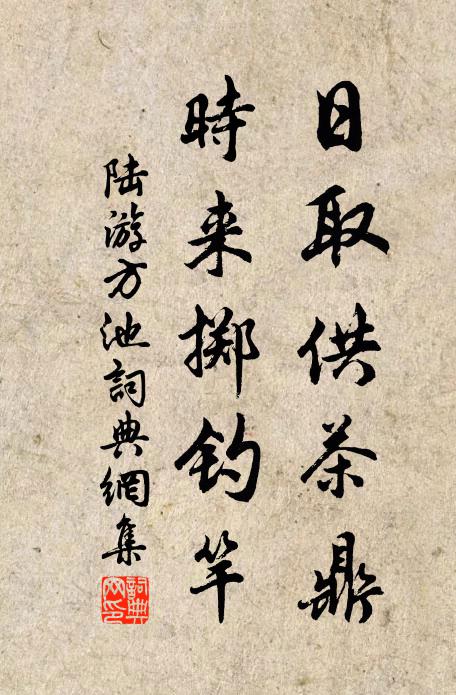 日取供茶鼎
時来擲钓竿
陆游方池詞典網集
詞典网印